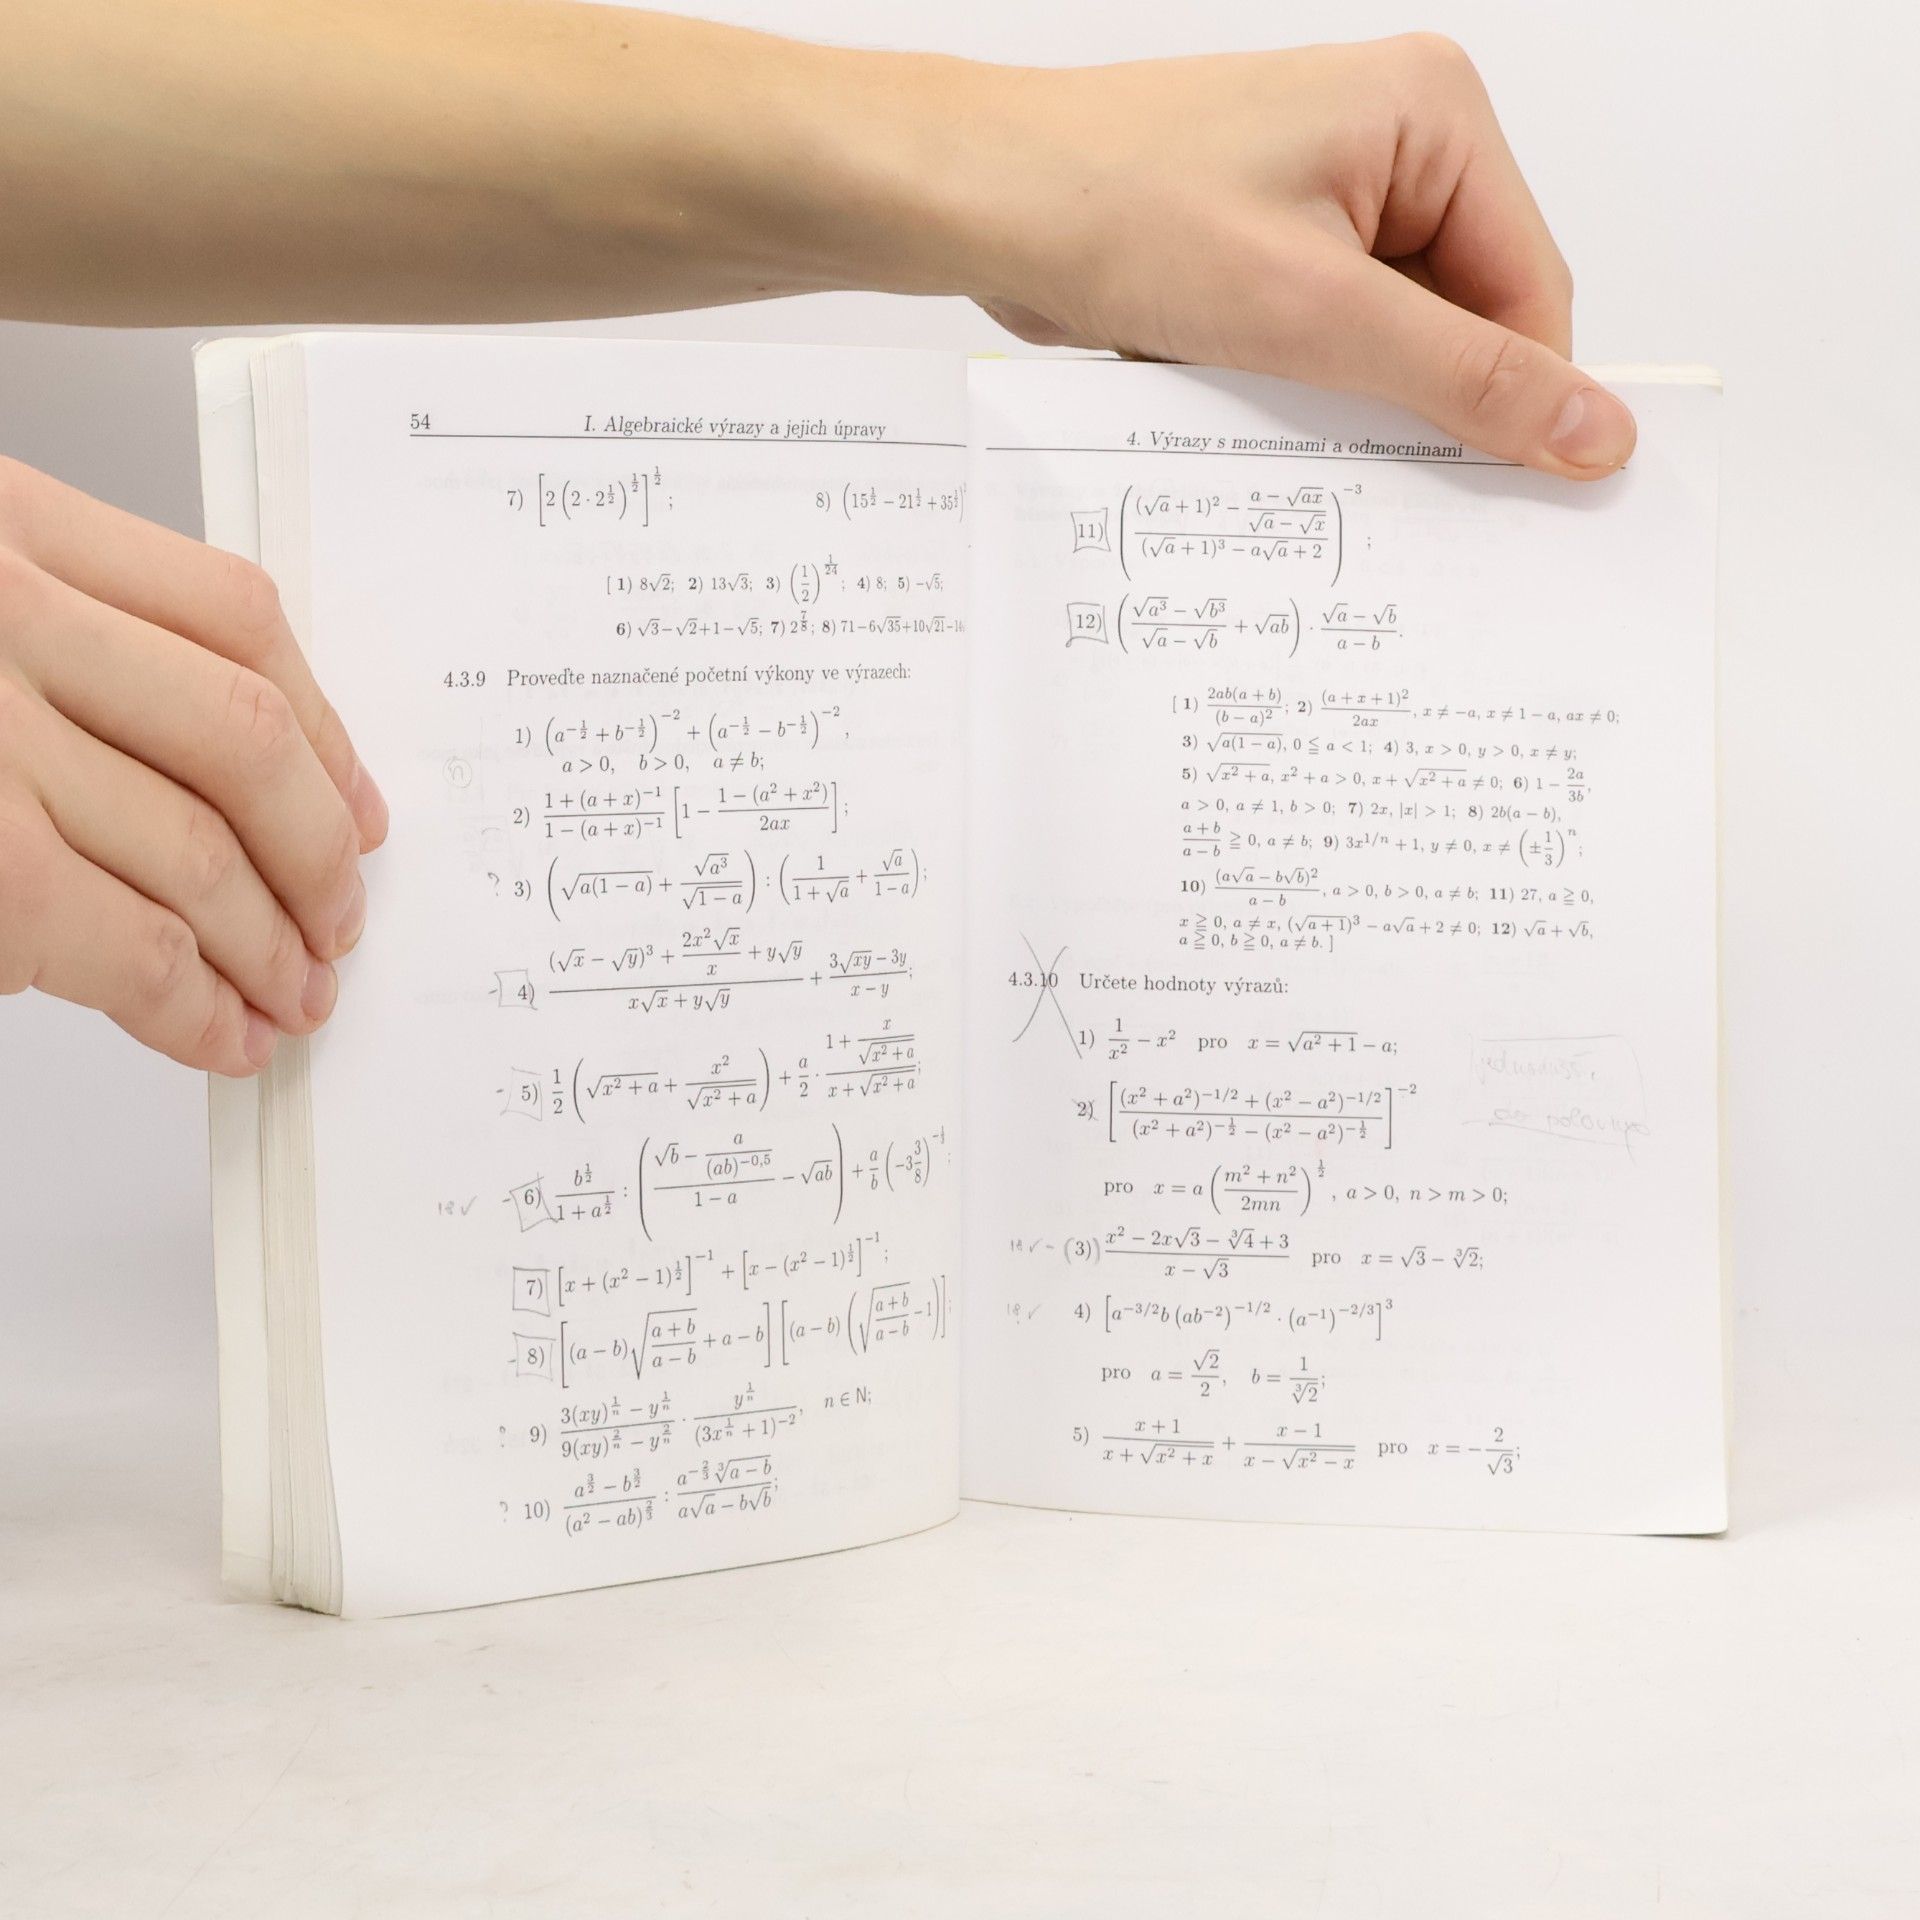 54 I. Algebraické výrazy a jejich úpravy
7) [2(2·2^{1/2})^{1/2}]^{1/2}; 8) (15^{1/2} − 21^{1/2} + 35^{1/2})
[ 1) 8√2; 2) 13√3; 3) (1/2)^{1/24}; 4) 8; 5) −√5;
6) √3−√2+1−√5; 7) 2^{7/8}; 8) 71−6√35+10√21−14
4.3.9 Proveďte naznačené početní výkony ve výrazech:
1) (a^{−1/2} + b^{−1/2})^{−2} + (a^{−1/2} − b^{−1/2})^{−2},
a > 0, b > 0, a ≠ b;
2) (1 + (a + x)^{−1})/(1 − (a + x)^{−1}) [1 − (1 − (a² + x²))/(2ax)];
? 3) (√(a(1 − a)) + √(a³)/√(1 − a)) : (1/(1 + √a) + √a/(1 − a));
- 4) ((√x − √y)³ + 2x²√x/x + y√y)/(x√x + y√y) + (3√(xy) − 3y)/(x − y);
- 5) 1/2 (√(x² + a) + x²/√(x² + a)) + a/2 · (1 + x/√(x² + a))/(x + √(x² + a));
18 ✓ - 6) b^{1/2}/(1 + a^{1/2}) : ((√b − a/(ab)^{−0,5})/(1 − a) − √(ab)) + a/b (−3 3/8)^{−1/3};
7) [x + (x² − 1)^{1/2}]^{−1} + [x − (x² − 1)^{1/2}]^{−1};
- 8) [(a − b)√((a + b)/(a − b)) + a − b] [(a − b)(√((a + b)/(a − b)) − 1)];
? 9) (3(xy)^{1/n} − y^{1/n})/(9(xy)^{2/n} − y^{2/n}) · y^{1/n}/(3x^{1/n} + 1)^{−2}, n ∈ N;
? 10) (a^{3/2} − b^{3/2})/(a² − ab)^{2/3} : (a^{−2/3} ∛(a − b))/(a√a − b√b);
4. Výrazy s mocninami a odmocninami
11) (((√a + 1)² − (a − √(ax))/(√a − √x))/((√a + 1)³ − a√a + 2))^{−3};
12) ((√(a³) − √(b³))/(√a − √b) + √(ab)) · (√a − √b)/(a − b).
[ 1) 2ab(a + b)/(b − a)²; 2) (a + x + 1)²/(2ax), x ≠ −a, x ≠ 1 − a, ax ≠ 0;
3) √(a(1 − a)), 0 ≦ a < 1; 4) 3, x > 0, y > 0, x ≠ y;
5) √(x² + a), x² + a > 0, x + √(x² + a) ≠ 0; 6) 1 − 2a/3b,
a > 0, a ≠ 1, b > 0; 7) 2x, |x| > 1; 8) 2b(a − b),
(a + b)/(a − b) ≧ 0, a ≠ b; 9) 3x^{1/n} + 1, y ≠ 0, x ≠ (±1/3)^n;
10) (a√a − b√b)²/(a − b), a > 0, b > 0, a ≠ b; 11) 27, a ≧ 0,
x ≧ 0, a ≠ x, (√(a + 1))³ − a√a + 2 ≠ 0; 12) √a + √b,
a ≧ 0, b ≧ 0, a ≠ b. ]
4.3.10 Určete hodnoty výrazů:
1) 1/x² − x² pro x = √(a² + 1) − a;
2) [((x² + a²)^{−1/2} + (x² − a²)^{−1/2})/((x² + a²)^{−1/2} − (x² − a²)^{−1/2})]^{−2}
pro x = a((m² + n²)/(2mn))^{1/2}, a > 0, n > m > 0;
18 ✓ - (3)) (x² − 2x√3 − ∛4 + 3)/(x − √3) pro x = √3 − ∛2;
18 ✓ 4) [a^{−3/2}b(ab^{−2})^{−1/2} · (a^{−1})^{−2/3}]³
pro a = √2/2, b = 1/∛2;
5) (x + 1)/(x + √(x² + x)) + (x − 1)/(x − √(x² − x)) pro x = −2/√3;